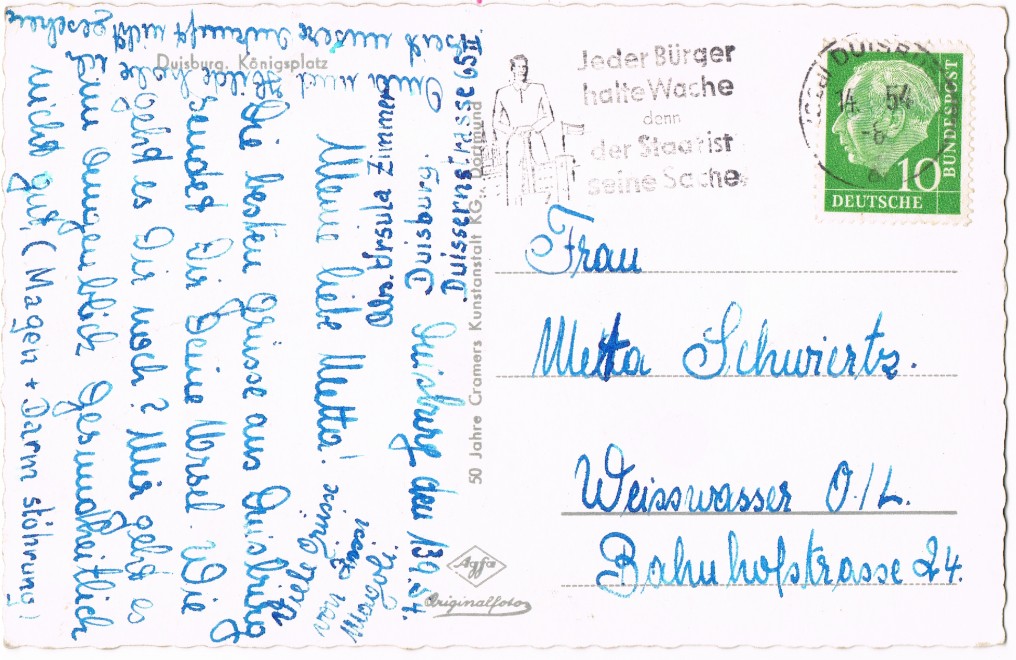 Duisburg, Königsplatz
Jeder Bürger
halte Wache
denn
der Staat ist
seine Sache
DUISBURG
14. 54
-8
10
DEUTSCHE
BUNDESPOST
Frau
Metta Schwiertz.
Weisswasser O./L.
Bahnhofstrasse 24.
50 Jahre Cramers Kunstanstalt KG., Dortmund
Agfa
Originalfoto
Abs. Ursula Zimmer
Duisburg
Duissernstrasse
Duisburg den 13.9.54.
Meine liebe Metta!
Die besten Grüsse aus Duisburg
sendet Dir Deine Ursel. Wie
Gehts es Dir noch? Mir geht es
im Augenblick Gesundheitlich
nicht gut, (Magen + Darm stöhrung)
Oma und Hilde habe ich
seit unsere Ankunft nicht gesehen
Viele Grüsse